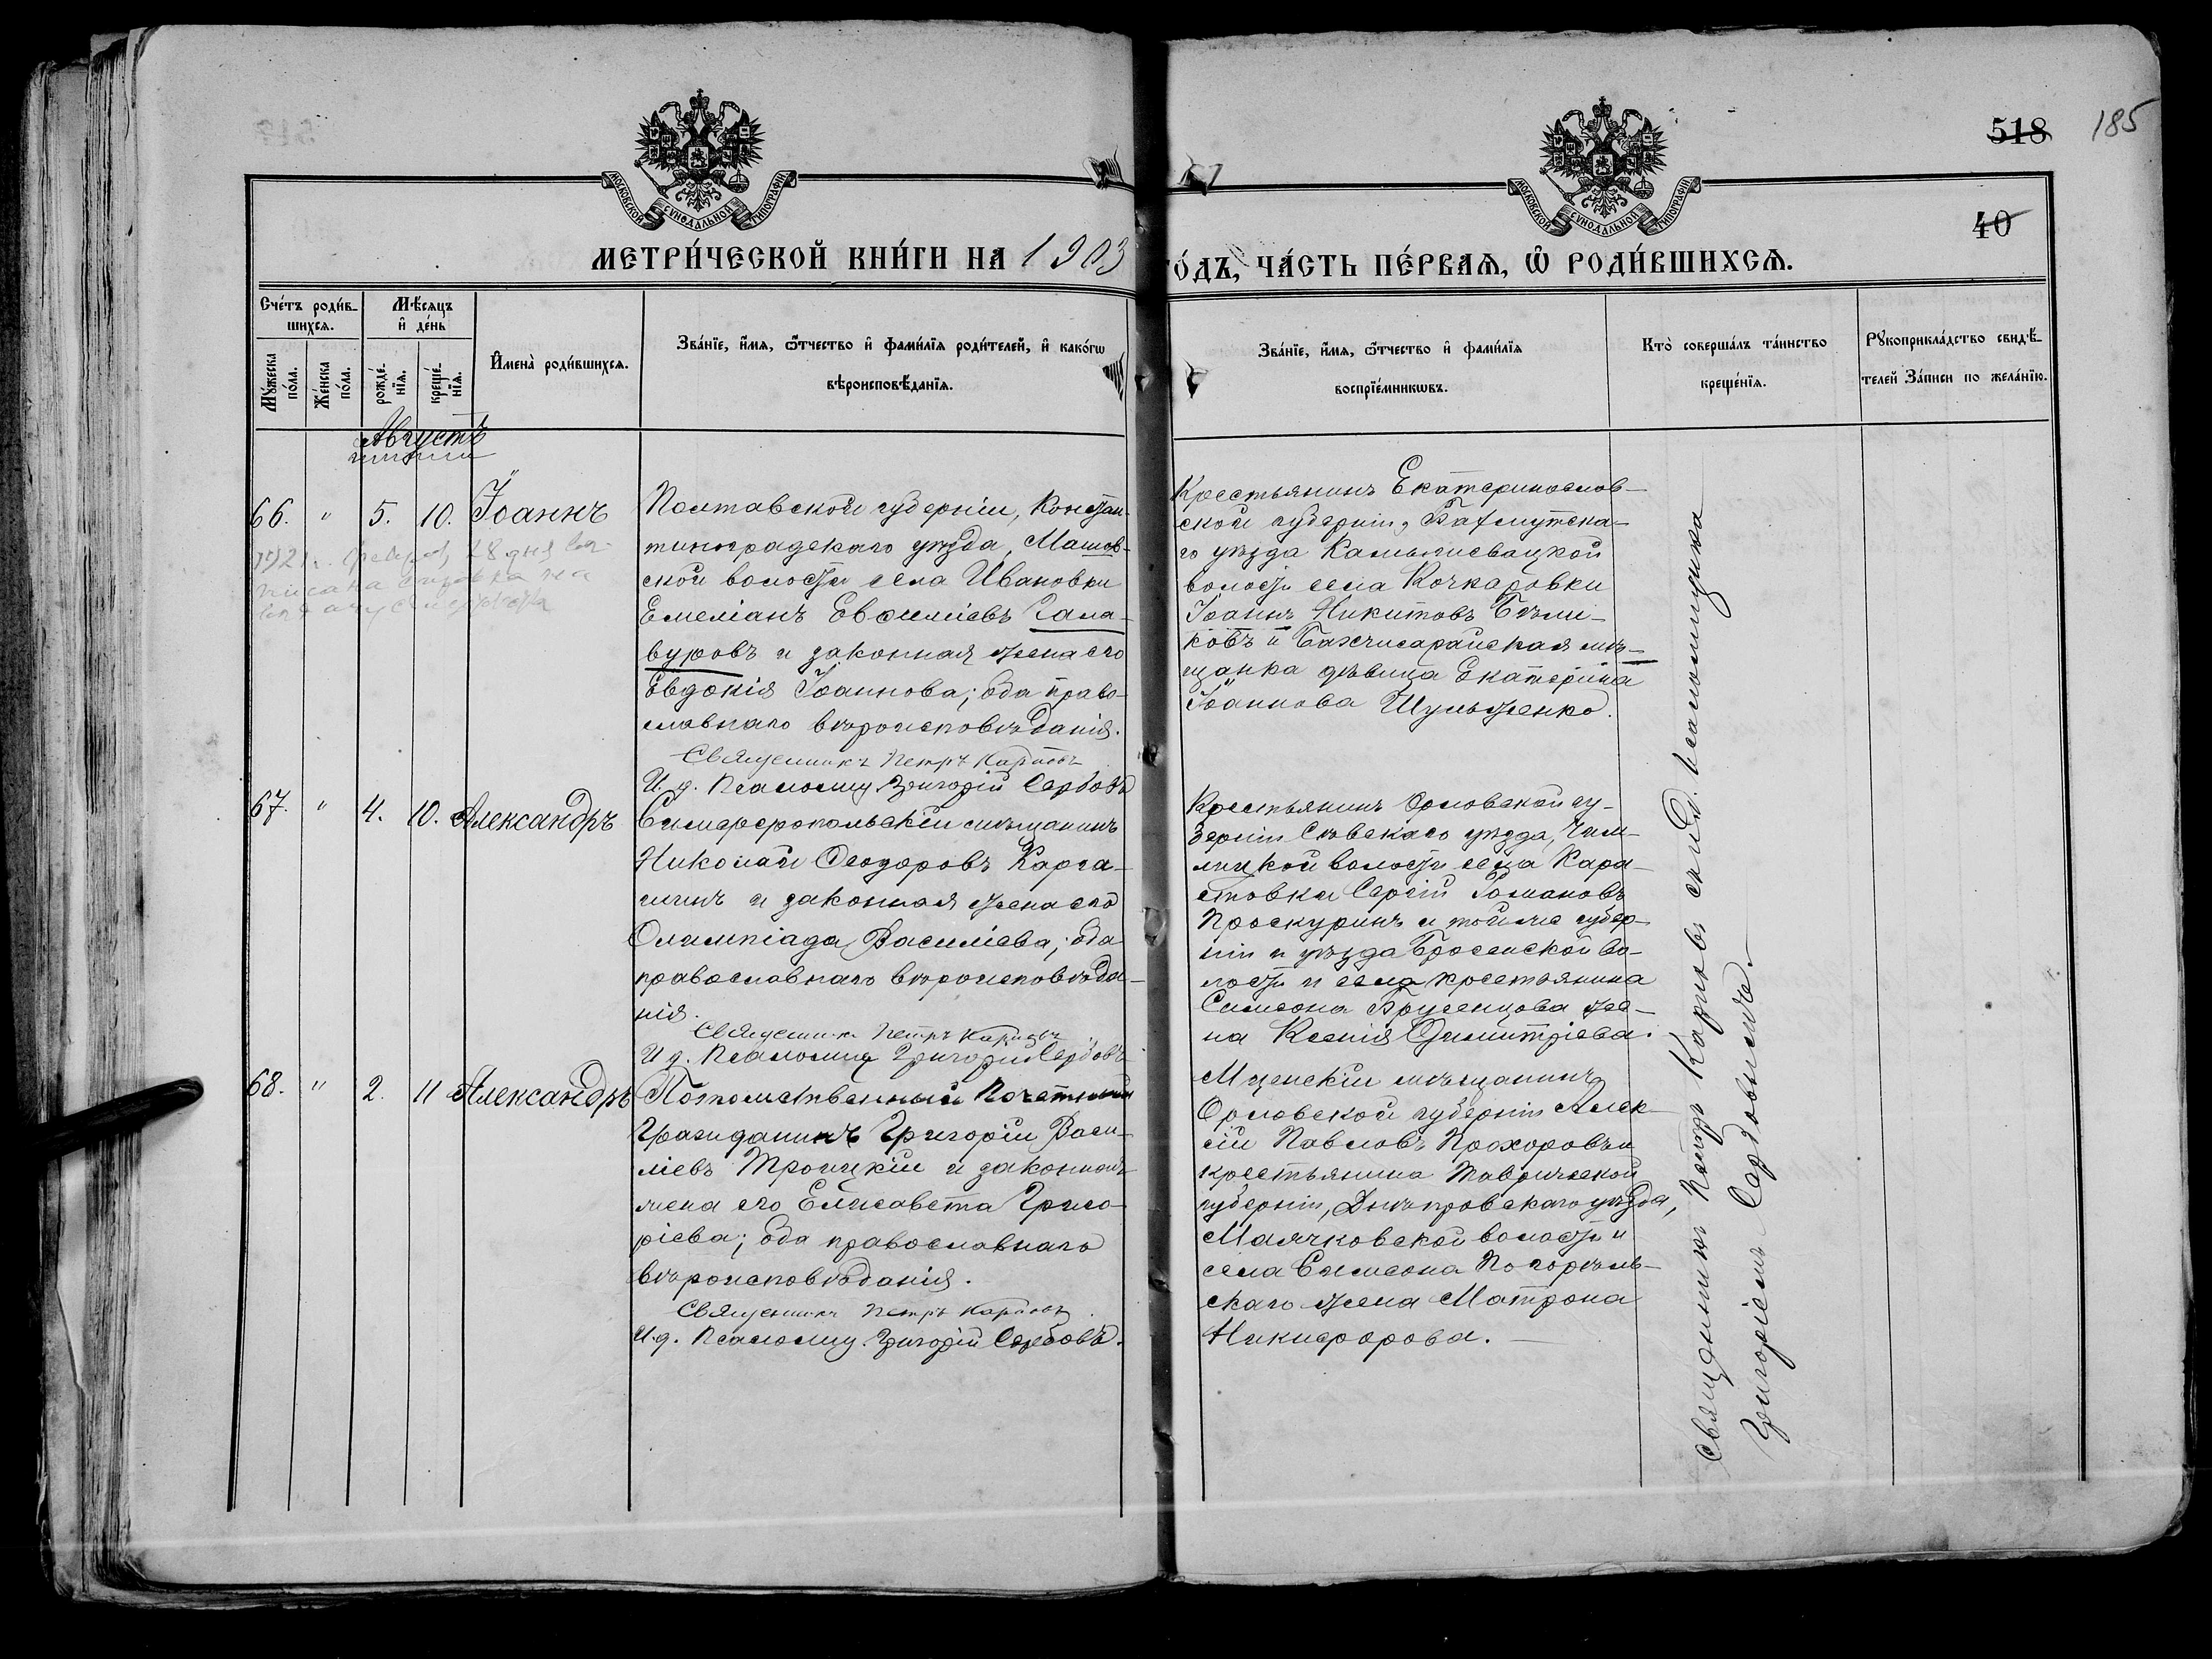 518 185
40
МОСКОВСКОЙ СѴНОДАЛЬНОЙ ТИПОГРАФІИ
МОСКОВСКОЙ СѴНОДАЛЬНОЙ ТИПОГРАФІИ
МЕТРИ́ЧЕСКОЙ КНИ́ГИ НА 1903
ГО́ДЪ, ЧА́СТЬ ПЕ́РВАѦ, Ѡ҆ РОДИ́ВШИХСѦ.
Сче́тъ роди́в-
шихсѧ.
Мꙋ́жеска
по́ла.
Же́нска
по́ла.
Мѣ́сѧцъ
и҆ де́нь
рожде́-
нїѧ.
креще́-
нїѧ.
И҆мена̀ роди́вшихсѧ.
Зва́нїе, и҆́мѧ, ѻ҆́тчество и҆ фами́лїѧ роди́телей, и҆ како́гѡ
вѣроисповѣ́данїѧ.
Зва́нїе, и҆́мѧ, ѻ҆́тчество и҆ фами́лїѧ
воспрїе́мникѡвъ.
Кто̀ соверша́лъ та́инство
креще́нїѧ.
Рꙋкоприкла́дство свидѣ́-
телей За́писи по жела́нїю.
Августъ
66. " 5. 10. Іоаннъ
1921 г. 28 дня
Полтавской губерніи, Констан-
тиноградскаго уѣзда, Машов-
ской волости села Ивановки
Емеліанъ Евѳиміевъ Гала-
вуровъ и законная жена его
Евдокія Іоаннова; оба право-
славнаго вѣроисповѣданія.
Священникъ Петръ Карповъ
И. д. Псаломщ. Григорій Сербовъ
Крестьянинъ Екатеринослав-
ской губерніи, Бахмутска-
го уѣзда Камышевацкой
волости села Кочкаровки
Іоаннъ Никитовъ Бѣли-
ковъ и Бахчисарайская мѣ-
щанка дѣвица Екатерина
Іоаннова Шульженко.
67. " 4. 10. Александръ
Симферопольскій мѣщанинъ
Николай Ѳеодоровъ Карга-
шинъ и законная жена его
Олимпіада Василіева; оба
православнаго вѣроисповѣда-
нія.
Священникъ Петръ Карповъ
И д. Псаломщ Григорій Сербовъ
Крестьянинъ Орловской гу-
берніи Сѣвскаго уѣзда,
волости села Кара-
Сергій Романовъ
Проскуринъ и той же губер-
ніи и уѣзда во-
лости и села крестьянина
Симеона Брусенцова же-
на Ксенія Димитріева.
68. " 2. 11 Александръ
Потомственный Почетный
Гражданинъ Григорій Васи-
ліевъ Троицкій и законная
жена его Елисавета Григо-
ріева; оба православнаго
вѣроисповѣданія.
Священникъ Петръ Карповъ
И.д. Псаломщ. Григорій Сербовъ.
Мценскій мѣщанинъ
Орловской губерніи Алек-
сій Павловъ Прохоровъ и
крестьянина Таврической
губерніи, Днѣпровскаго уѣзда,
Маячковской волости и
села Симеона Погорѣль-
скаго жена Матрона
Никифорова.
Священникъ Петръ Карповъ съ и.д. псаломщика
Григоріемъ Сербовымъ.